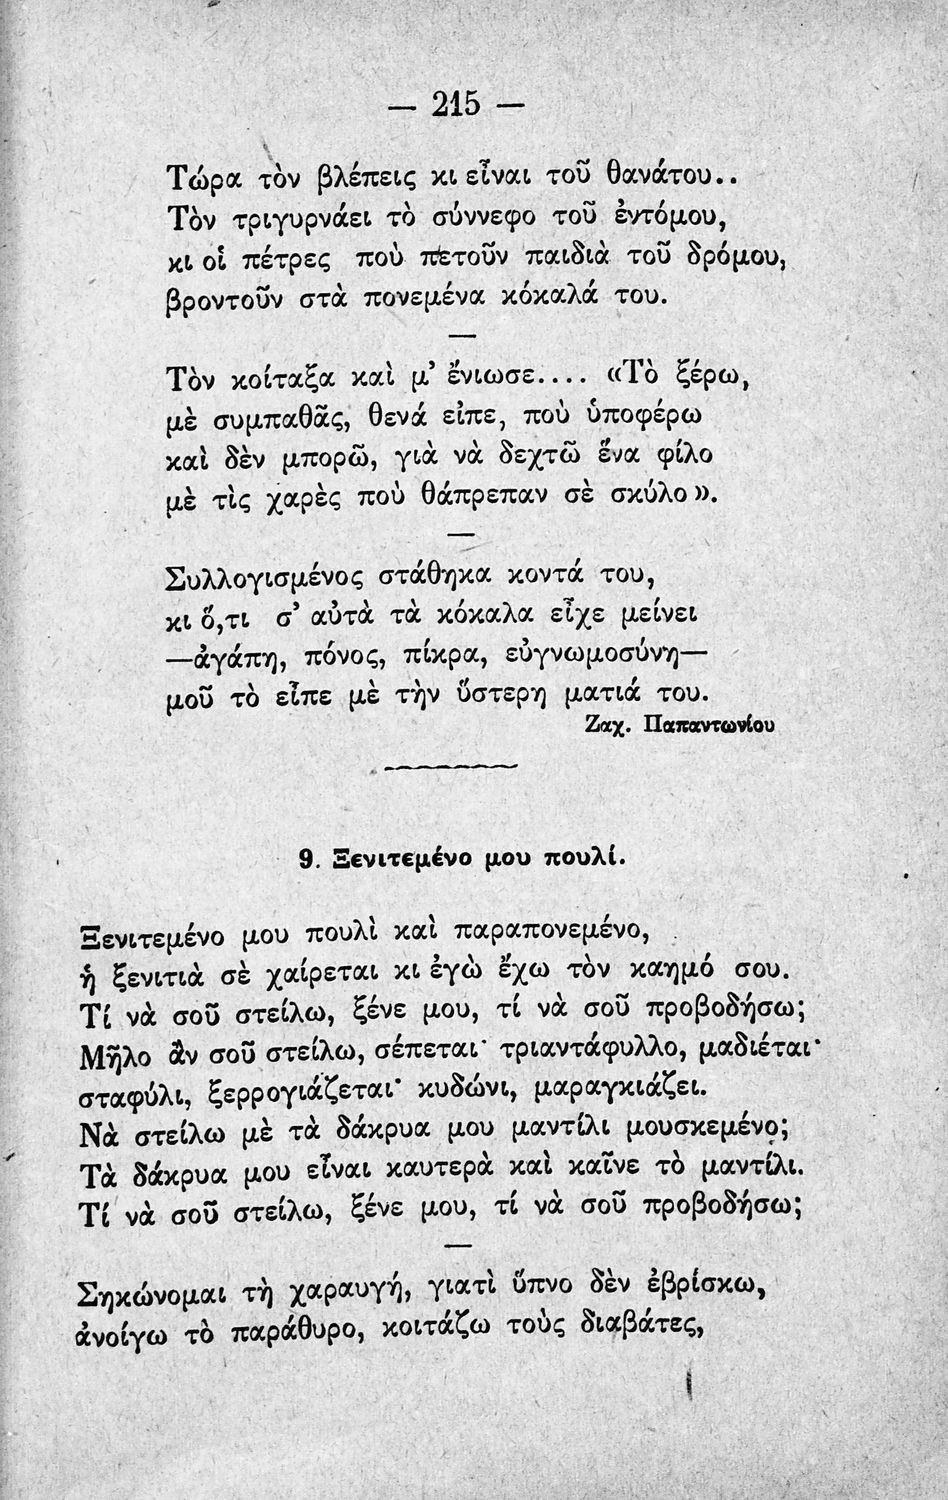 — 215 —
Τώρα τὸν βλέπεις κι εἶναι τοῦ θανάτου..
Τὸν τριγυρνάει τὸ σύννεφο τοῦ ἐντόμου,
κι οἱ πέτρες ποὺ πετοῦν παιδιὰ τοῦ δρόμου,
βροντοῦν στὰ πονεμένα κόκαλά του.
—
Τὸν κοίταξα καὶ μ᾽ ἔνιωσε.... «Τὸ ξέρω,
μὲ συμπαθᾶς, θενά εἰπε, ποὺ ὑποφέρω
καὶ δὲν μπορῶ, γιὰ νὰ δεχτῶ ἕνα φίλο
μὲ τὶς χαρὲς ποὺ θάπρεπαν σὲ σκύλο».
—
Συλλογισμένος στάθηκα κοντά του,
κι ὅ,τι σ᾽ αὐτὰ τὰ κόκαλα εἶχε μείνει
—ἀγάπη, πόνος, πίκρα, εὐγνωμοσύνη—
μοῦ τὸ εἶπε μὲ τὴν ὕστερη ματιά του.
Ζαχ. Παπαντωνίου
9. Ξενιτεμένο μου πουλί.
Ξενιτεμένο μου πουλὶ καὶ παραπονεμένο,
ἡ ξενιτιὰ σὲ χαίρεται κι ἐγὼ ἔχω τὸν καημό σου.
Τί νὰ σοῦ στείλω, ξένε μου, τί νὰ σοῦ προβοδήσω;
Μῆλο ἂν σοῦ στείλω, σέπεται· τριαντάφυλλο, μαδιέται·
σταφύλι, ξερρογιάζεται· κυδώνι, μαραγκιάζει.
Νὰ στείλω μὲ τὰ δάκρυα μου μαντίλι μουσκεμένο;
Τὰ δάκρυα μου εἶναι καυτερὰ καὶ καῖνε τὸ μαντίλι.
Τί νὰ σοῦ στείλω, ξένε μου, τί νὰ σοῦ προβοδήσω;
—
Σηκώνομαι τὴ χαραυγή, γιατὶ ὕπνο δὲν ἐβρίσκω,
ἀνοίγω τὸ παράθυρο, κοιτάζω τοὺς διαβάτες,